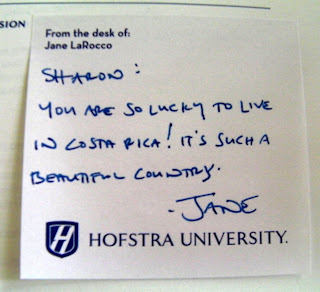 SION
From the desk of:
Jane LaRocco
SHARON:
YOU ARE SO LUCKY TO LIVE
IN COSTA RICA! IT'S SUCH A
BEAUTIFUL COUNTRY.
-JANE
H HOFSTRA UNIVERSITY.